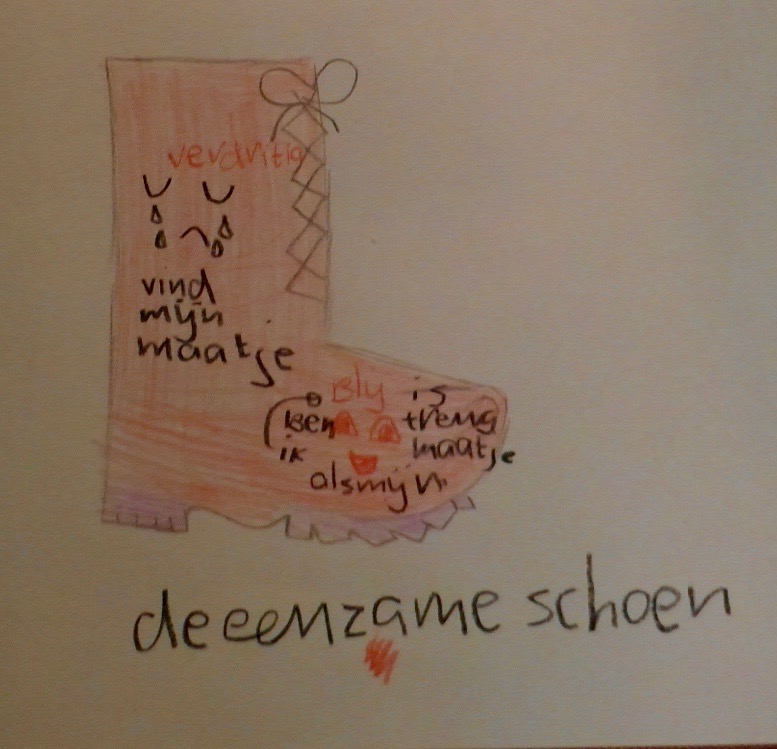 verdritig
vind
mijn
maatje
Bly is
ben treug
ik maatje
alsmijn
de eenzame schoen